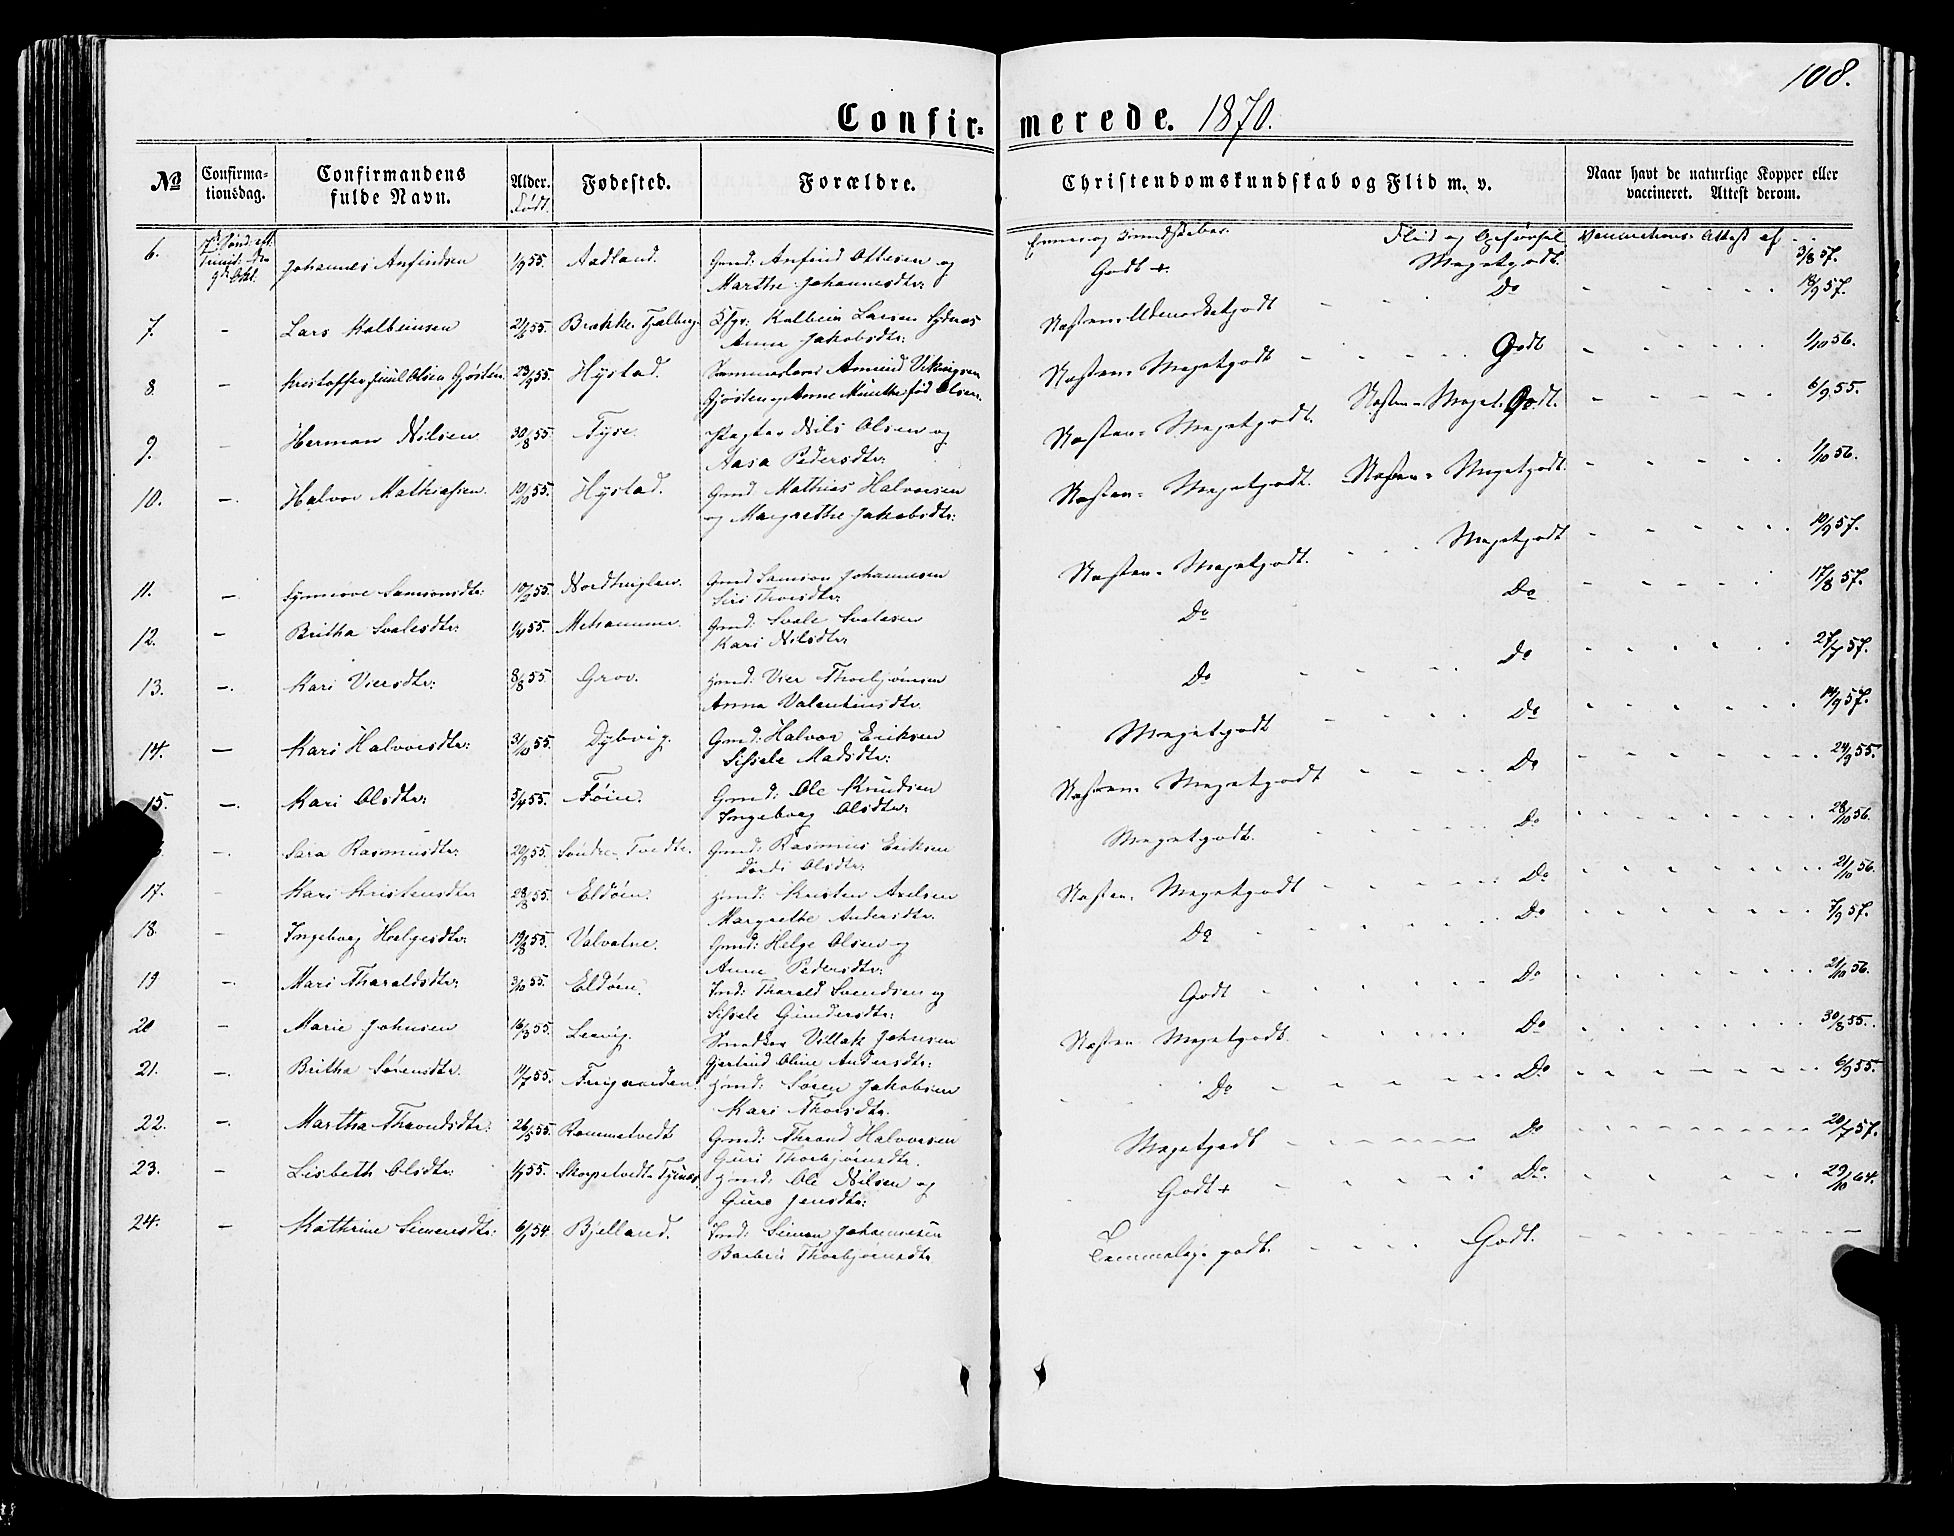 108.
Confir= merede. 1870.
No Confirma-tionsdag. Confirmandens fulde Navn. Alder. Født. Fødested. Forældre. Christendomskundskab og Flid m. v. Naar havt de naturlige Kopper eller vaccineret. Attest derom.
6. Johannes Anfindsen 1/9 55. Aadland. Gmd: Anfind Ottesen og
Marthe Johannesdtr.
Evner og Kundskaber. Godt +. Flid og Opførsel Megetgodt. Vaccinations Attest af 3/8 57.
7. - Lars Kolbeinsen Brække Kolbein Larsen
Anna Jakobsdtr:
Næsten Udmærketgodt Do 57.
8. - Olsen Gjøsten 23/9 55. Hystad. Amund Vikingsen
Gjøsten og Anne født Olsen.
Næsten Megetgodt Godt 1/10 56.
9. - Herman Nilsen 30/8 55. Tyse. Nils Olsen og
Aasa Pedersdtr:
Næsten Megetgodt. Næsten Meget Godt. 6/9 55.
10. - Halvor Mathiassen. 10/10 55. Hystad. Gmd Mathias Halvorsen
og Margrethe Jakobsdtr:
Næsten Megetgodt. Næsten Megetgodt. 1/10 56.
11. - Synnøve Samsonsdtr: Nordhuglen. Gmd Samson Johannesen
Siri Thoesdtr:
Næsten Megetgodt. Megetgodt 10/9 57.
12. - Britha Svalesdtr: 1/4 55. Mehammer. Gmd: Svale Svalesen
Kari Nilsdtr:
Do Do 17/8 57.
13. - Kari Viersdtr: 8/8 55. Grov. Vier Thorbjørnsen
Anna Valentinsdtr.
Do Do 27/7 57.
14. - Kari Halvorsdtr: 31/10 55. Dybvig. Gmd: Halvor Eriksen
Sissele Madsdtr:
Megetgodt Do 14/9 57.
15. - Kari Olsdtr: 5/4 55. Føien. Gmd: Ole Knudsen
Ingeborg Olsdtr:
Næsten Megetgodt Do 24/9 55.
- Sara Rasmusdtr: Søndre Tvedte. Gmd: Rasmus Eriksen
Olsdtr:
Megetgodt. Do 28/10 56.
17. - Kari Kristensdtr 28/8 55. Eldøen. Kristen Axelsen
Margrethe Andersdtr.
Næsten Megetgodt Do 21/10 56.
18. - Ingeborg Helgesdtr: 19/8 55. Valvatne. Gmd: Helge Olsen og
Anne Pedersdtr:
Do Do 7/9 57.
19 - Mari Tharaldsdtr: 3/10 55. Eldøen. Tharald Svendsen og
Sissele Gundersdtr:
Godt Do 21/10 56.
20 - Marie Johnsen 16/3 55. Leervig. Villak Johnsen
Gjertrud Oline Andersdtr:
Næsten Megetgodt. Do 30/8 55.
21. - Britha Sørensdtr. 14/7 55. Søren Jakobsen
Kari Thoesdtr.
Do Do 6/9 55.
22. - Martha Throndsdtr: 26/5 55. Rommetvedt Gmd: Thrond Halvorsen
Guri Thorbjørnsdtr.
Megetgodt Do 20/7 57.
23. - Lisbeth Olsdtr: Skorpetvedt Ole Nilsen og
Guro Jensdtr:
Godt + Do. 29/10 64.
24. - Kathrine Simensdtr: 6/11 54. Bjelland. Simon Johannesen
Barbra Thorbjørnsdtr
Temmelig godt. Godt.